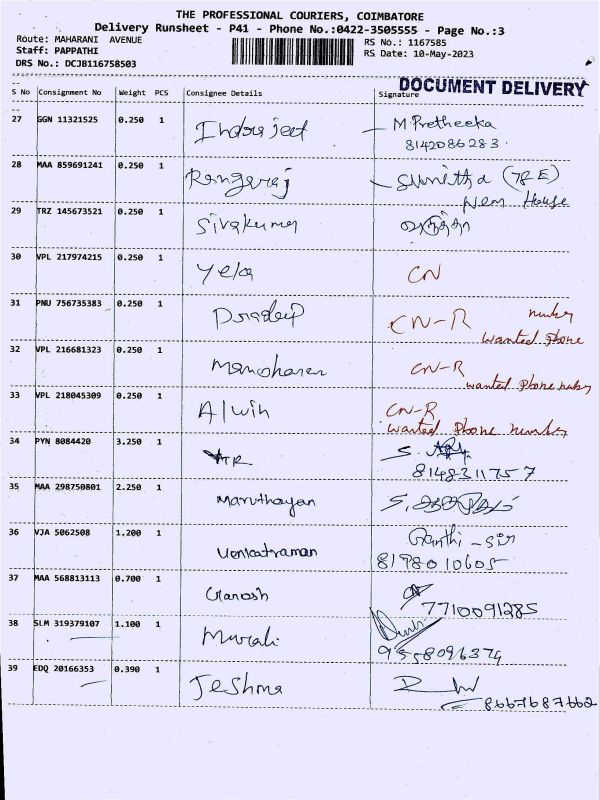 THE PROFESSIONAL COURIERS, COIMBATORE
Delivery Runsheet - P41 - Phone No.:0422-3505555 - Page No.:3
Route: MAHARANI AVENUE
RS No.: 1167585
Staff: PAPPATHI
RS Date: 10-May-2023
DRS No.: DCJB116758503
DOCUMENT DELIVERY
S No Consignment No Weight PCS Consignee Details Signature
27 GGN 11321525 0.250 1 Indrajeet - M. Pretheeka
8142086283.
28 MAA 859691241 0.250 1 Rangaraj - Sunitha (78 E)
New House
29 TRZ 145673521 0.250 1 Sivakumar
30 VPL 217974215 0.250 1 Yela CN
31 PNU 756735383 0.250 1 Pradeep CN-R number
wanted phone
32 VPL 216681323 0.250 1 Manoharan CN-R
wanted phone number
33 VPL 218045309 0.250 1 Alwin CN-R
wanted phone number
34 PYN 8084420 3.250 1 S.
8148311757
35 MAA 298750801 2.250 1 Maruthayan S.
36 VJA 5062508 1.200 1 Venkatraman Ganthi - sir
8198010605
37 MAA 568813113 0.700 1 Ganesh
7710091285
38 SLM 319379107 1.100 1 Murali
9558096374
39 EDQ 20166353 0.390 1 Jeshma
8667687662